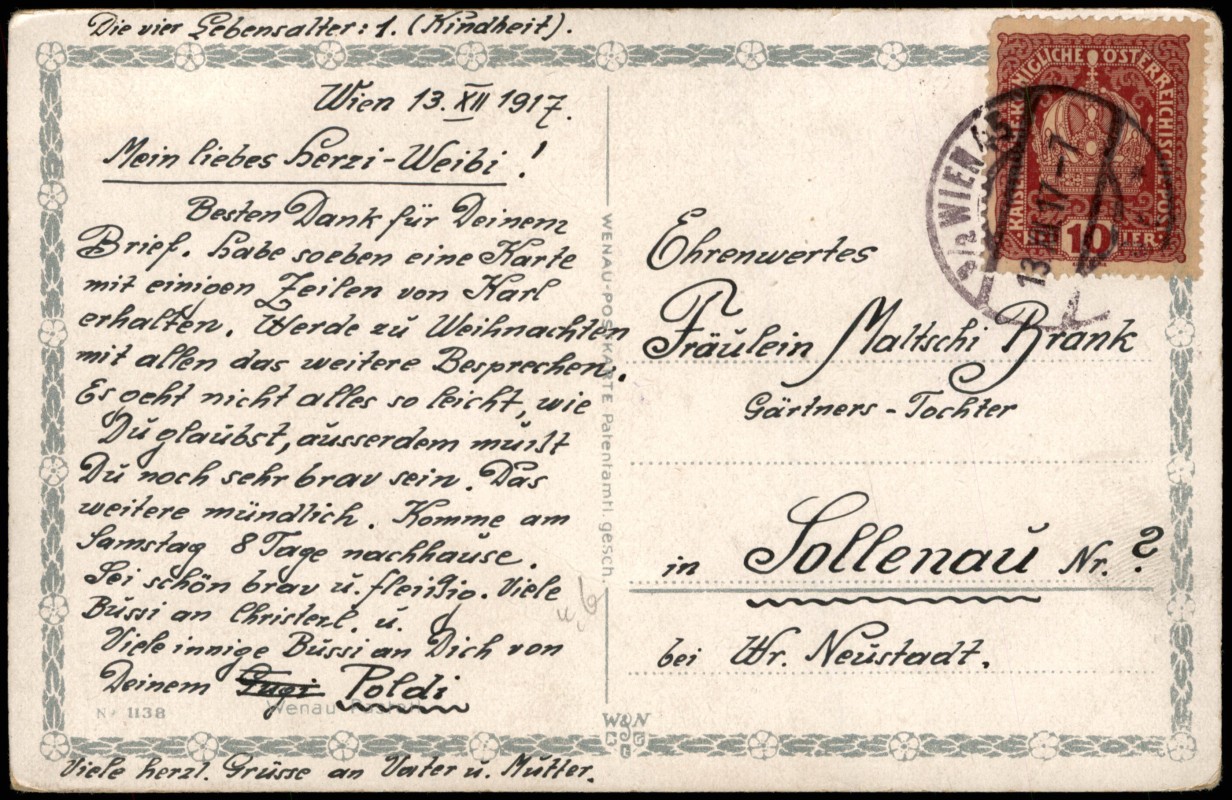 Die vier Lebensalter: 1. (Kindheit).
Wien 13. XII 1917.
Mein liebes Herzi-Weibi!
Besten Dank für Deinen
Brief. Habe soeben eine Karte
mit einigen Zeilen von Karl
erhalten. Werde zu Weihnachten
mit allen das weitere Besprechen.
Es geht nicht alles so leicht, wie
Du glaubst, ausserdem mußt
Du noch sehr brav sein. Das
weitere mündlich. Komme am
Samstag 8 Tage nachhause.
Sei schön brav u. fleißig. Viele
Bussi an Christerl. u.
Viele innige Bussi an Dich von
Deinem Poldi
Nr 1138
Wenau Pastell
Viele herzl. Grüsse an Vater u. Mutter.
WENAU-POSTKARTE Patentamtl. gesch.
W&N
KAISERLICHE KÖNIGLICHE ÖSTERREICHISCHE POST
10 HELLER
WIEN 45
13 XII 17-7
Ehrenwertes
Fräulein Maltschi Brank
Gärtners-Tochter
in Sollenau Nr. ?
bei Wr. Neustadt.